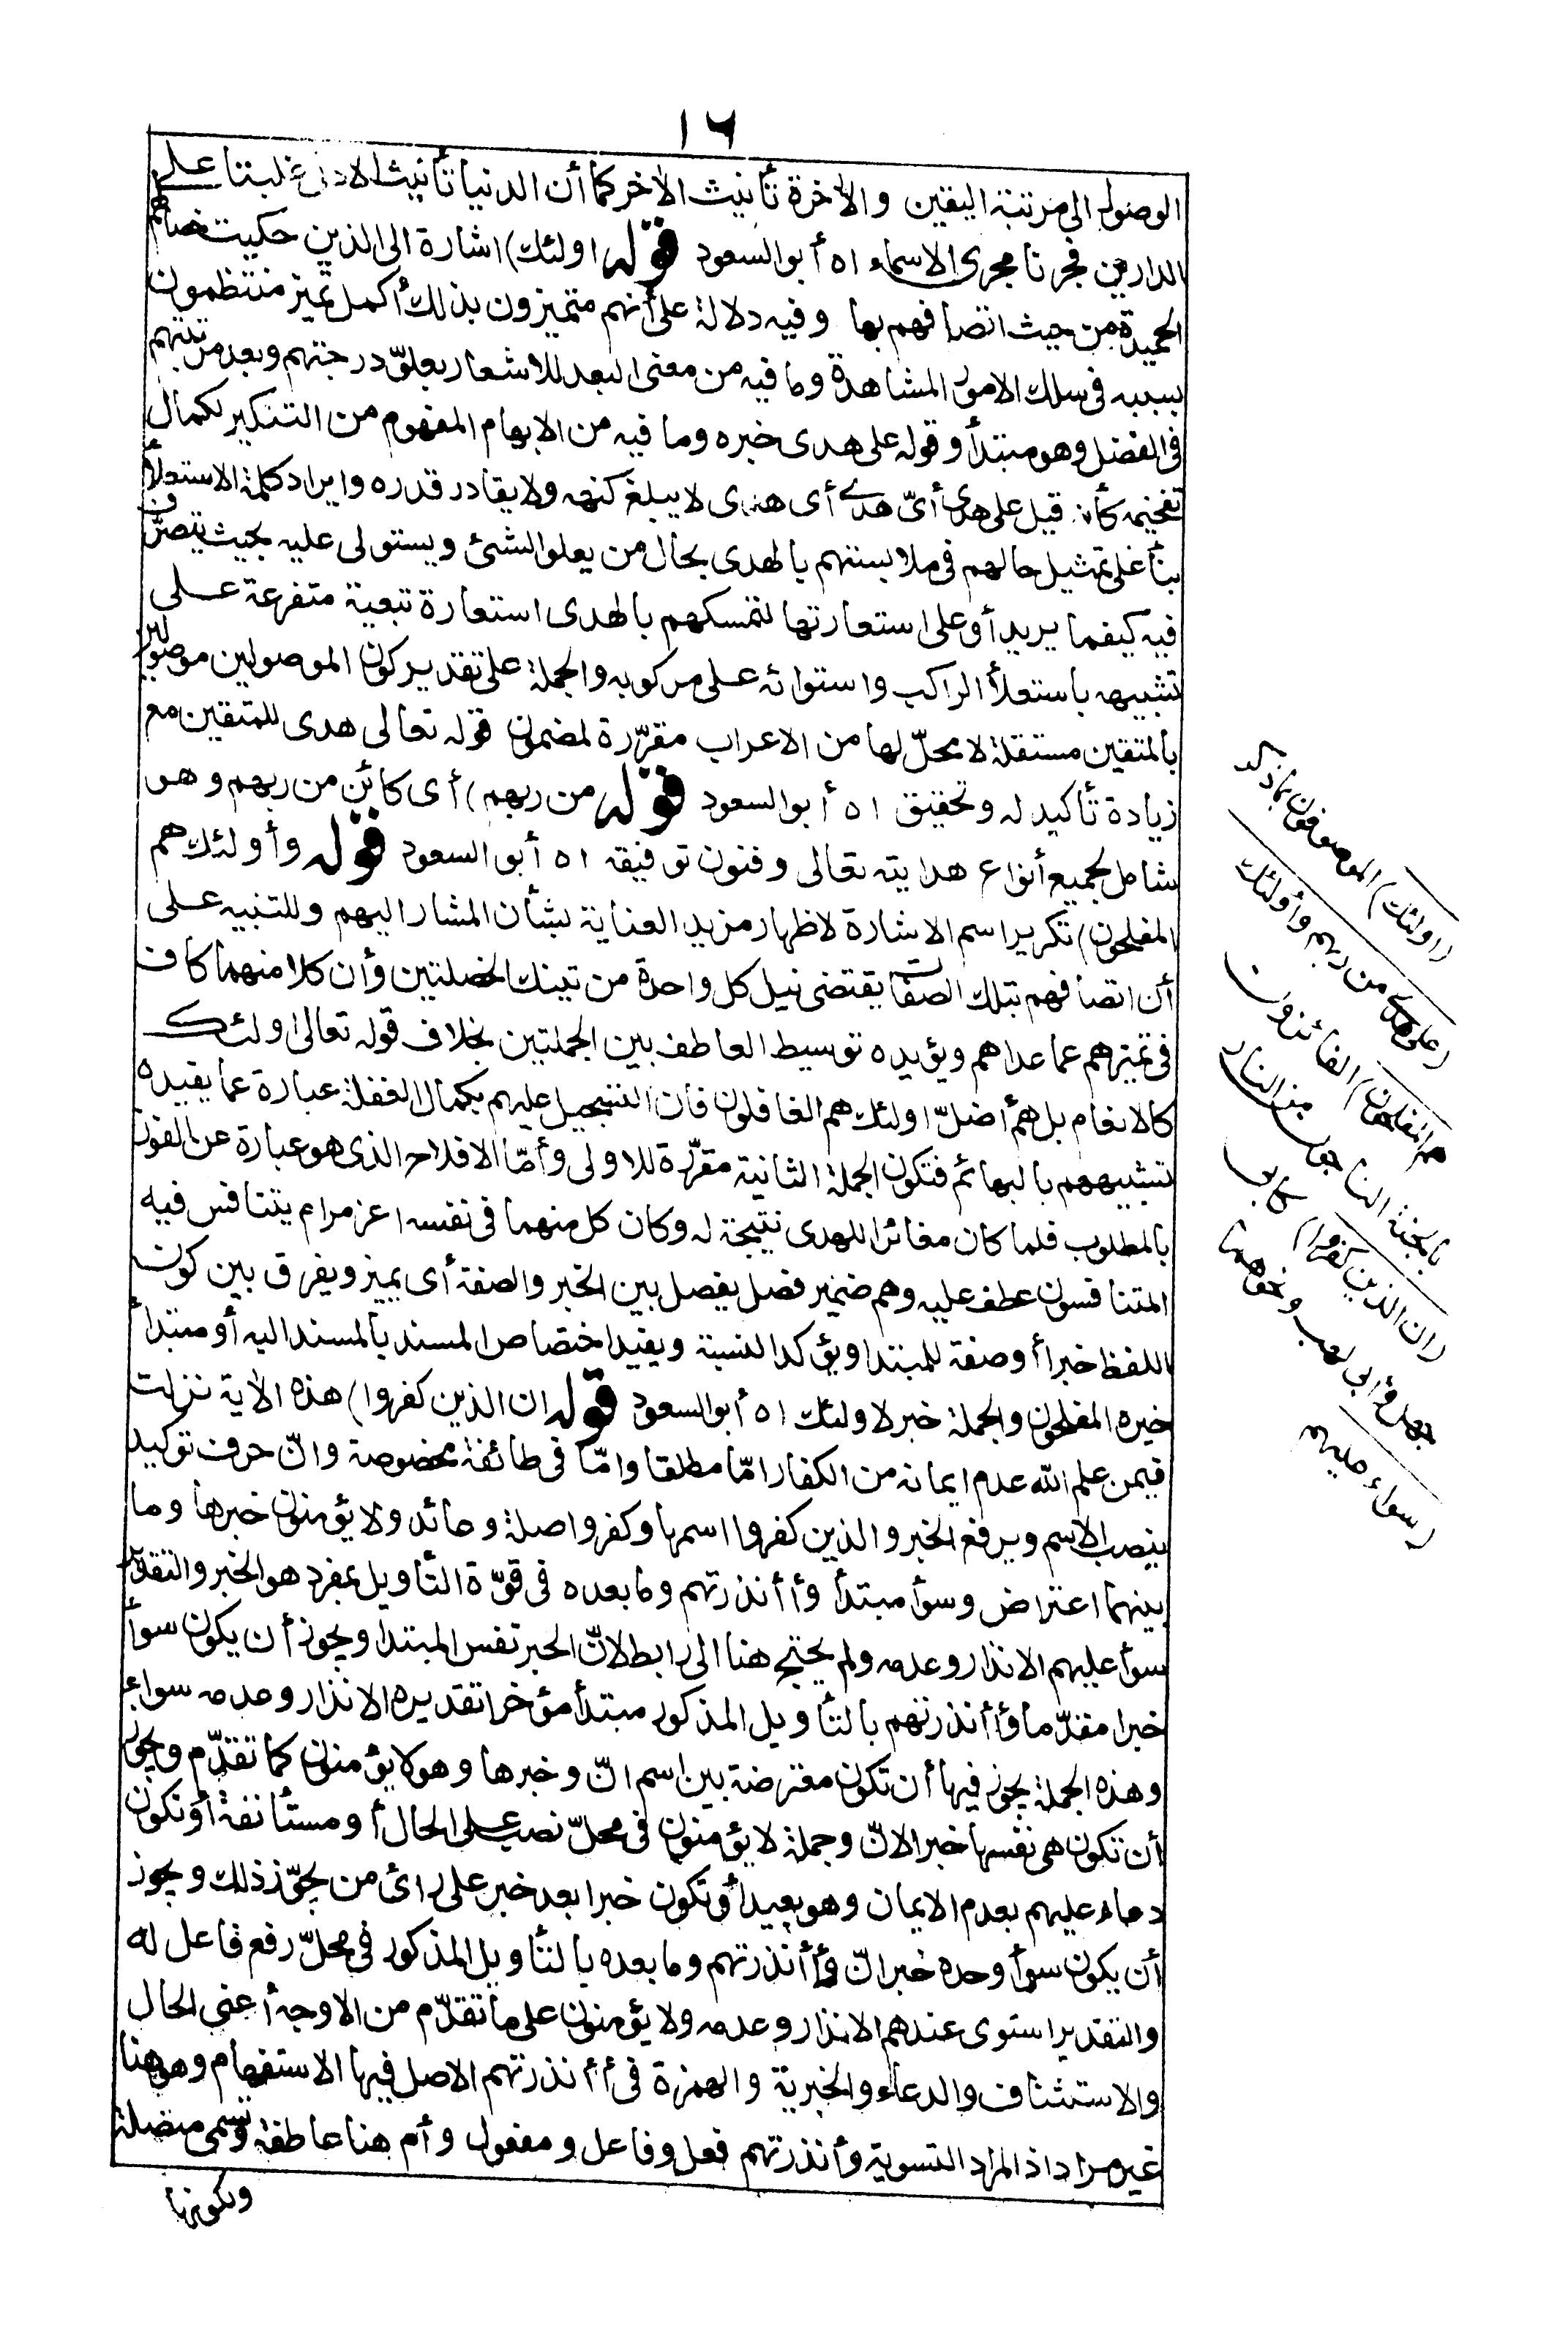 ١٦
الوصول الى مرتبة اليقين والآخرة تأنيث الآخر كما أن الدنيا تأنيث الادنى غلبتا على
الدارين فجرتا مجرى الاسماء اه أبو السعود قوله اولئك) اشارة الى الذين حكيت خصالهم
الحميدة من حيث اتصافهم بها وفيه دلالة على أنهم متميزون بذلك أكمل تميز منتظمون
بسببه فى سلك الامور المشاهدة وما فيه من معنى البعد للاشعار بعلوّ درجتهم وبعد مرتبتهم
فى الفضل وهو مبتدأ وقوله على هدى خبره وما فيه من الابهام المفهوم من التنكير لكمال
تفخيمه كأنه قيل على هدى أىّ هدى أى هدى لا يبلغ كنهه ولا يقادر قدره وايراد كلمة الاستعلأ
بنأ على تمثيل حالهم فى ملابستهم بالهدى بحال من يعلو الشئ ويستولى عليه بحيث يتصرّف
فيه كيفما يريد أو على استعارتها لتمسكهم بالهدى استعارة تبعية متفرعة على
تشبيهه باستعلأ الراكب واستوائه على مركوبه والجملة على تقدير كون الموصولين موصولين
بالمتقين مستقلة لا محلّ لها من الاعراب مقرّرة لمضمون قوله تعالى هدى للمتقين مع
زيادة تأكيد له وتحقيق اه أبو السعود قوله من ربهم) أى كائن من ربهم وهو
شامل لجميع أنواع هدايته تعالى وفنون توفيقه اه أبو السعود قوله وأولئك هم
المفلحون) تكرير اسم الاشارة لاظهار مزيد العناية بشأن المشار اليهم وللتنبيه على
أن اتصافهم بتلك الصفات يقتضى نيل كل واحدة من تينك الخصلتين وأن كلا منهما كاف
فى تميزهم عما عداهم ويؤيده توسيط العاطف بين الجملتين بخلاف قوله تعالى اولئك
كالانعام بل هم أضلّ اولئك هم الغافلون فان التسجيل عليهم بكمال الغفلة عبارة عما يفيده
تشبيههم بالبهائم فتكون الجملة الثانية مقرّرة للاولى وأمّا الافلاح الذى هو عبارة عن الفوز
بالمطلوب فلما كان مغائرا للهدى نتيجة له وكان كل منهما فى نفسه اعز مرام يتنافس فيه
المتنافسون عطف عليه وهم ضمير فصل يفصل بين الخبر والصفة أى يميز ويفرق بين كون
اللفظ خبرا أو صفة للمبتدا ويؤكد النسبة ويفيد اختصاص المسند بالمسند اليه أو مبتدأ
خبره المفلحون والجملة خبر لاولئك اه أبو السعود قوله ان الذين كفروا) هذه الآية نزلت
فيمن علم الله عدم ايمانه من الكفار امّا مطلقا وامّا فى طائفة مخصوصة وانّ حرف توكيد
ينصب الاسم ويرفع الخبر والذين كفروا اسمها وكفروا صلة وعائد ولا يؤمنون خبرها وما
بينهما اعتراض وسوأ مبتدأ وأأنذرتهم وما بعده فى قوّة التأويل بمفرد هو الخبر والتقدير
سوأ عليهم الانذار وعدمه ولم يحتج هنا الى رابط لانّ الخبر نفس المبتدا ويجوز أن يكون سوأ
خبرا مقدّما وأأنذرتهم بالتأويل المذكور مبتدأ مؤخرا تقديره الانذار وعدمه سواء
وهذه الجملة يجوز فيها أن تكون معترضة بين اسم انّ وخبرها وهو لا يؤمنون كما تقدّم ويجوز
أن تكون هى نفسها خبرا لانّ وجملة لا يؤمنون فى محلّ نصب على الحال أو مستأنفة أو تكون
دعاء عليهم بعدم الايمان وهو بعيد أو تكون خبرا بعد خبر على رائ من يجوّز ذلك ويجوز
أن يكون سوأ وحده خبر انّ وأأنذرتهم وما بعده بالتأويل المذكور فى محلّ رفع فاعل له
والتقدير استوى عندهم الانذار وعدمه ولا يؤمنون على ما تقدّم من الاوجه أعنى الحال
والاستئناف والدعاء والخبرية والهمزة فى أأنذرتهم الاصل فيها الاستفهام وهى هنا
غير مراد اذ المراد التسوية وأنذرتهم فعل وفاعل ومفعول وأم هنا عاطفة وتسمى متصلة
ولكونها
(اولئك) الموصوفون بما ذكر
(على هدى من ربهم وأولئك
هم المفلحون) الفائزون
بالجنة الناجون من النار
(ان الذين كفروا) كأبى
جهل وأبى لهب ونحوهما
(سواء عليهم